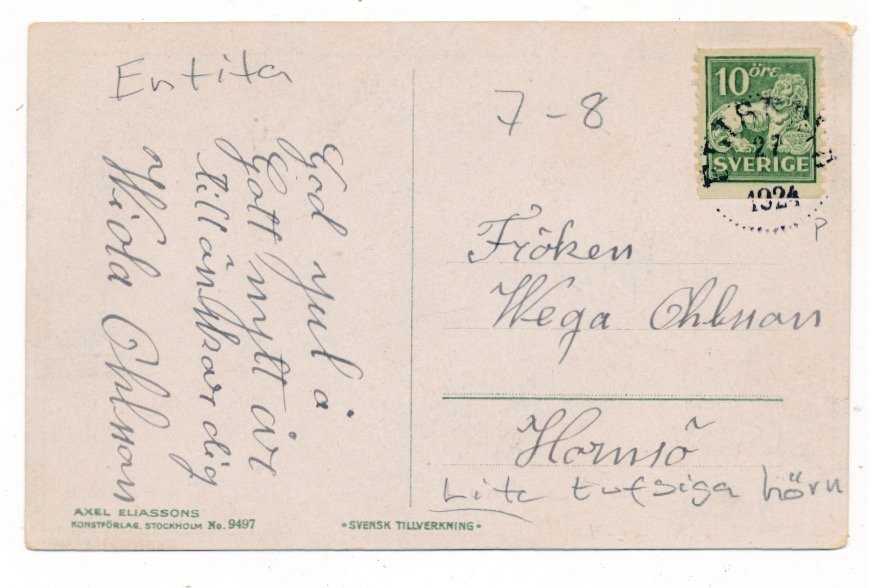 Entita
God jul å
Gott nytt år
tillönskar dig
Wiola Ohlsson
7-8
10 ÖRE
SVERIGE
1924
P
Fröken
Wega Ohlsson
Hornsö
Lite tufsiga hörn
AXEL ELIASSONS
KONSTFÖRLAG. STOCKHOLM No. 9497
•SVENSK TILLVERKNING•